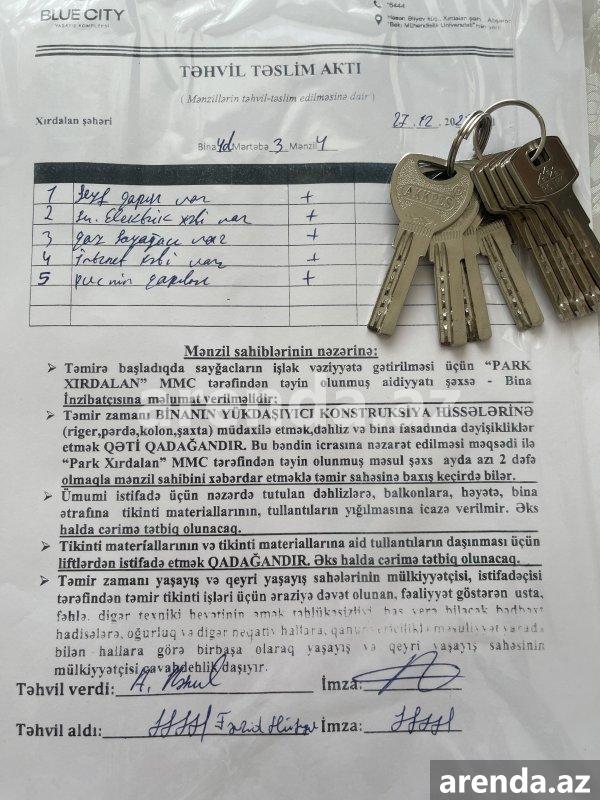 BLUE CITY
YAŞAYIŞ KOMPLEKSİ
*6444
Həsən Əliyev küç., Xırdalan şəh., Abşeron
"Bakı Mühəndislik Universiteti"nin yanı
TƏHVİL TƏSLİM AKTI
( Mənzillərin təhvil-təslim edilməsinə dair )
Xırdalan şəhəri
27.12.202
Bina 4d Mərtəbə 3 Mənzil 4
1 Seyf qapısı var +
2 Elektrik xətti var +
3 qaz sayğacı var +
4 İnternet xətti var +
5 pvc nin qapıları +
AKKPLO
Mənzil sahiblərinin nəzərinə:
➢ Təmirə başladıqda sayğacların işlək vəziyyətə gətirilməsi üçün “PARK
XIRDALAN” MMC tərəfindən təyin olunmuş aidiyyatı şəxsə - Bina
İnzibatçısına məlumat verilməlidir:
➢ Təmir zamanı BİNANIN YÜKDAŞIYICI KONSTRUKSİYA HİSSƏLƏRİNƏ
(riger,pərdə,kolon,şaxta) müdaxilə etmək,dəhliz və bina fasadında dəyişikliklər
etmək QƏTİ QADAĞANDIR. Bu bəndin icrasına nəzarət edilməsi məqsədi ilə
“Park Xırdalan” MMC tərəfindən təyin olunmuş məsul şəxs ayda azı 2 dəfə
olmaqla mənzil sahibini xəbərdar etməklə təmir sahəsinə baxış keçirdə bilər.
➢ Ümumi istifadə üçün nəzərdə tutulan dəhlizlərə, balkonlara, həyətə, bina
ətrafına tikinti materiallarının, tullantıların yığılmasına icazə verilmir. Əks
halda cərimə tətbiq olunacaq.
➢ Tikinti materfallarının və tikinti materiallarına aid tullantıların daşınması üçün
liftlərdən istifadə etmək QADAĞANDIR. Əks halda cərimə tətbiq olunacaq.
➢ Təmir zamanı yaşayış və qeyri yaşayış sahələrinin mülkiyyətçisi, istifadəçisi
tərəfindən təmir tikinti işləri üçün əraziyə dəvət olunan, fəaliyyət göstərən usta,
fəhlə, digər texniki heyətinin əmək təhlükəsizliyi, baş verə biləcək bədbəxt
hadisələrə, oğurluq və digər neqativ hallara, qanun məsuliyyət yarada
bilən hallara görə birbaşa olaraq yaşayış və qeyri yaşayış sahəsinin
mülkiyyətçisi cavabdehlik daşıyır.
Təhvil verdi: A. İmza:
Təhvil aldı: Fərid İmza:
arenda.az
arenda.az